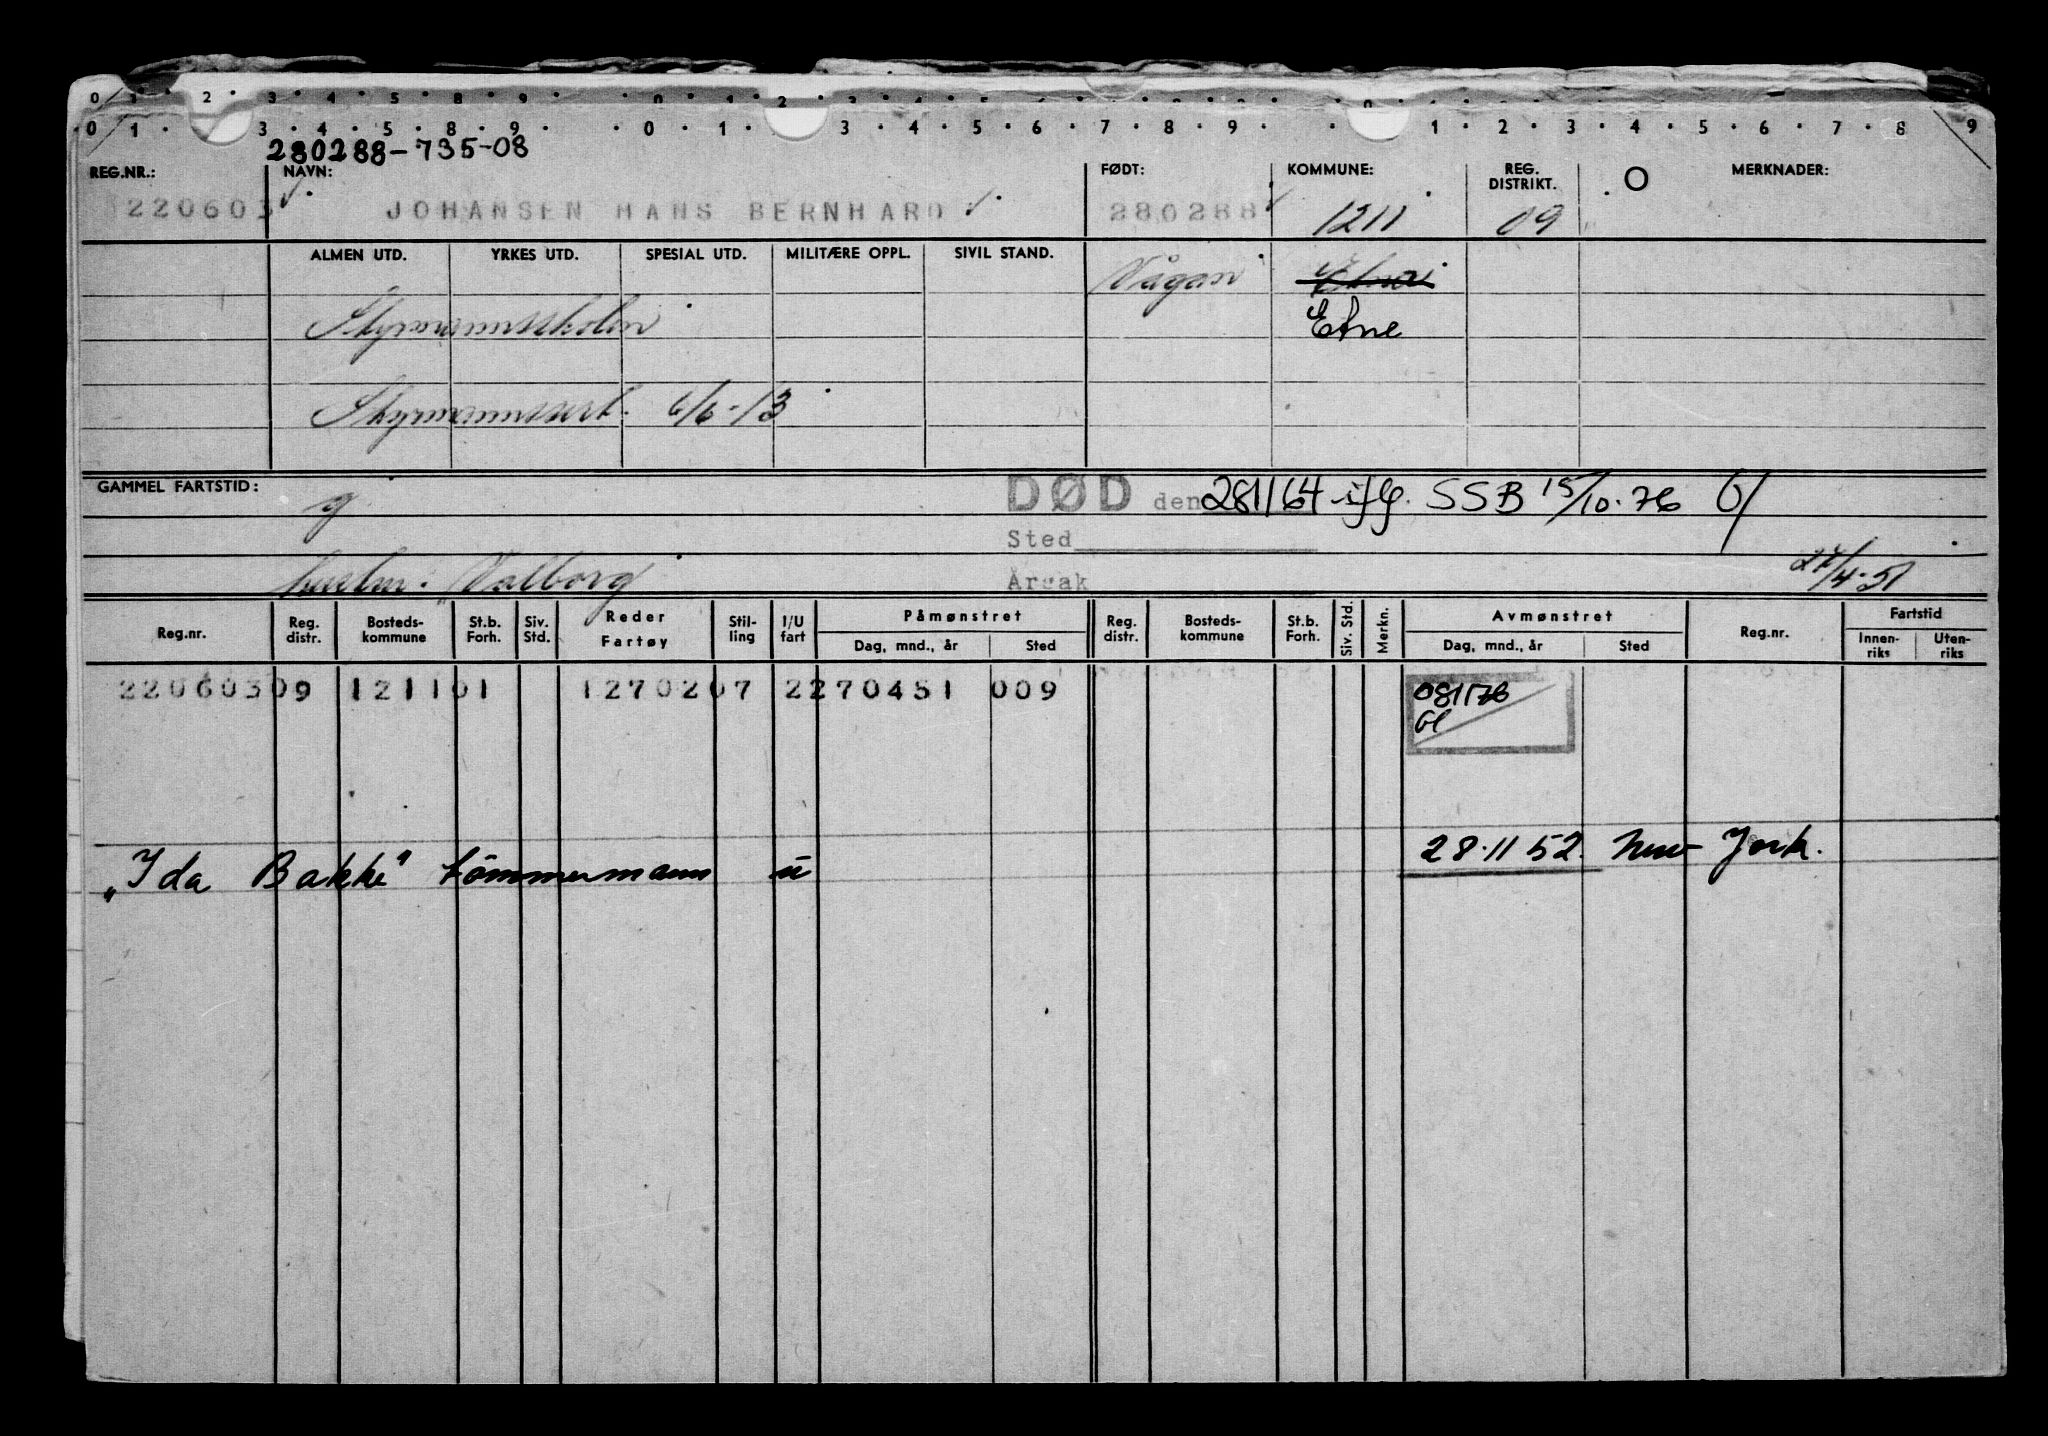 0 1 2 3 4 5 8 9 0 1 2 3 4 5 6 7 8 9
0 1 3 4 5 8 9 0 1 3 4 5 6 7 8 9 1 2 3 4 5 6 7 8 9
280288-735-08
REG.NR.: NAVN: FØDT: KOMMUNE: REG. DISTRIKT. O MERKNADER:
220603 JOHANSEN HANS BERNHARD 280288 1211 09
ALMEN UTD. YRKES UTD. SPESIAL UTD. MILITÆRE OPPL. SIVIL STAND. Vågan
Styrmannsskolen Etne
Styrmannssert. 6/6-13
GAMMEL FARTSTID: g DØD den 281164 iflg. SSB 15/10.76
Sted
Valborg Årsak 27/4-51
Reg.nr. Reg. distr. Bosteds- kommune St.b. Forh. Siv. Std. Reder Fartøy Stil- ling I/U fart Påmønstret Dag, mnd., år Sted Reg. distr. Bosteds- kommune St.b. Forh. Siv. Std. Merkn. Avmønstret Dag, mnd., år Sted Reg.nr. Fartstid Innen- riks Uten- riks
220603 09 1211 01 12702 07 2 270451 009 081176
Gl
28.11 52. New York.
„Ida Bakke" tömmermann u